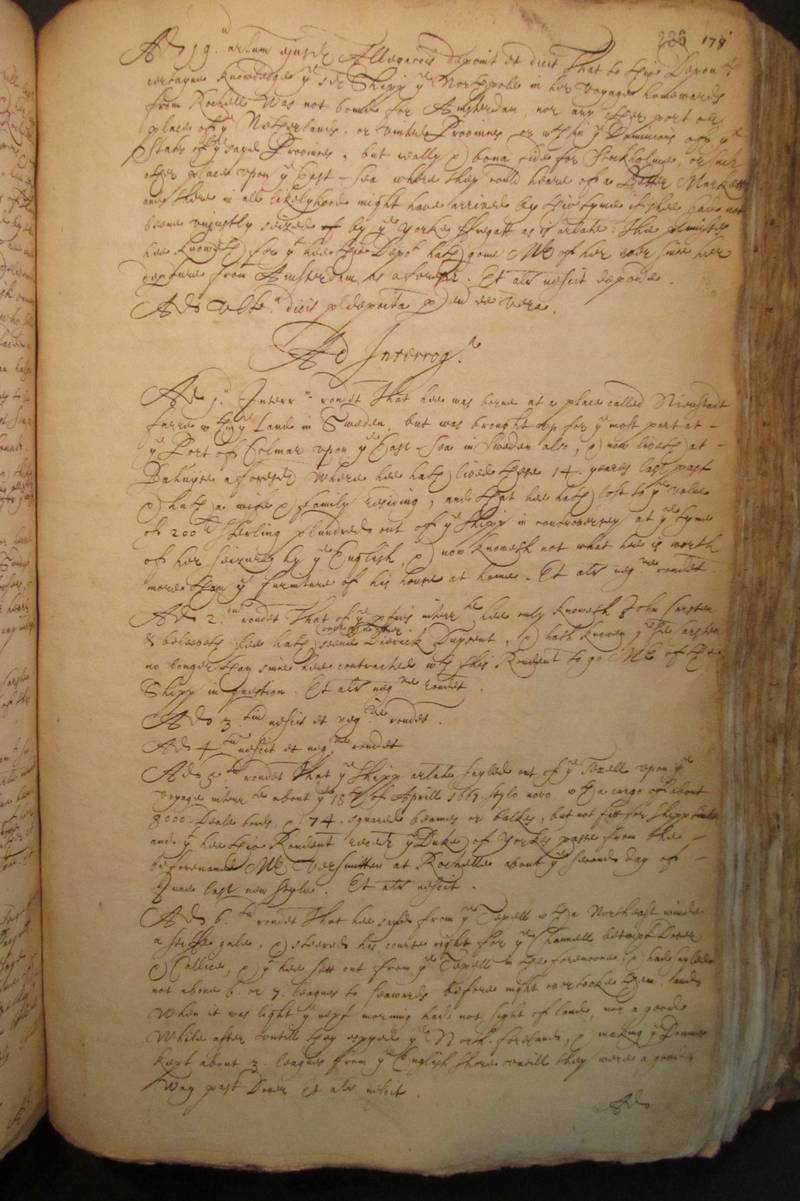 226 178
Ad 19.um artum ejusdem Allegacōis deponit et dicit That to this Depon.ts
certayne knowledge ye sd Shipp ye Northpole in her voyage homewards
from Rochell was not bound for Amsterdam, nor any other port or
place of ye Netherlands, or united Provinces or wthin ye Dominions of ye
States of ye sayd Provinces, but really & bona fide for Stockholme, or some
other place upon ye East-sea where they could heare of a Better Markett
and there in all likelyhood might have arrived by this tyme if shee had not
beene unjustly seized of by ye Yorke fregatt as is arlate. The premisses
hee knoweth for yt hee this Depont hath gone Mr of her ever since her
departure from Amsterdam as aforesd. Et alr nescit deponere.
Ad ult. dicit pdeposita p eu esse vera.
Ad Interrog.ria
Ad 1. Interr.m rondet That hee was borne at a place called Nieustadt
farre wthin ye Land in Sweden, but was brought up for ye most part at -
ye Port of Colmar upon ye East-sea in Sweden also, & now liveth at -
aforesd Where hee hath lived these 14. yeares last past
& hath a wife & family residing, and that hee hath lost to ye value
of 200 li sterling plundred out of ye shipp in controversy at ye tyme
of her seizure by ye English, & now knoweth not what hee is worth
more than ye furniture of his house at home. Et alr neg.ve rondet
Ad 2.um rondet That of ye pties interr.te hee only knoweth John Carsten
& beleeveth hee hath seene Diderick Dupont, & hath knowen ye sd Carsten
no longer than since hee contracted wth this Rondent to go Mr of the
Shipp in question. Et alr neg.ve rondet.
Ad 3.um nescit et neg.ve rondet.
Ad 4.um nescit et neg.ve rondet
Ad 5.um rondet That ye Shipp arlate sayled out of ye Texell upon ye
voyage interr.te about ye 18th of Aprill 1667 stylo novo wth a cargo of about
8000. Deale bords, & 74. squared beames or balkes, but not fit for Shipp timber
and yt hee this Rondent receivd ye Duke of Yorkes passe from the -
beforenamed Mr at Rochelle about ye second day of -
June last new style. Et alr nescit.
Ad 6.um rondet That hee sayled from ye Texell wth a Northeast winde
a stiffe gale, & steered his course right for ye Channell betwixt Dover
& Callice, & yt hee sett out from ye Texell in the forenoone & had sayled
not above 6. or 7. leagues to seawards before night overtooke them, and
When it was light ye next morning had not sight of land, nor a good
While after untill they espyed ye North-foreland, & making ye Downes
kept about 3. leagues from ye English shore untill they were a good
Way past Dover et alr nescit.
Ad